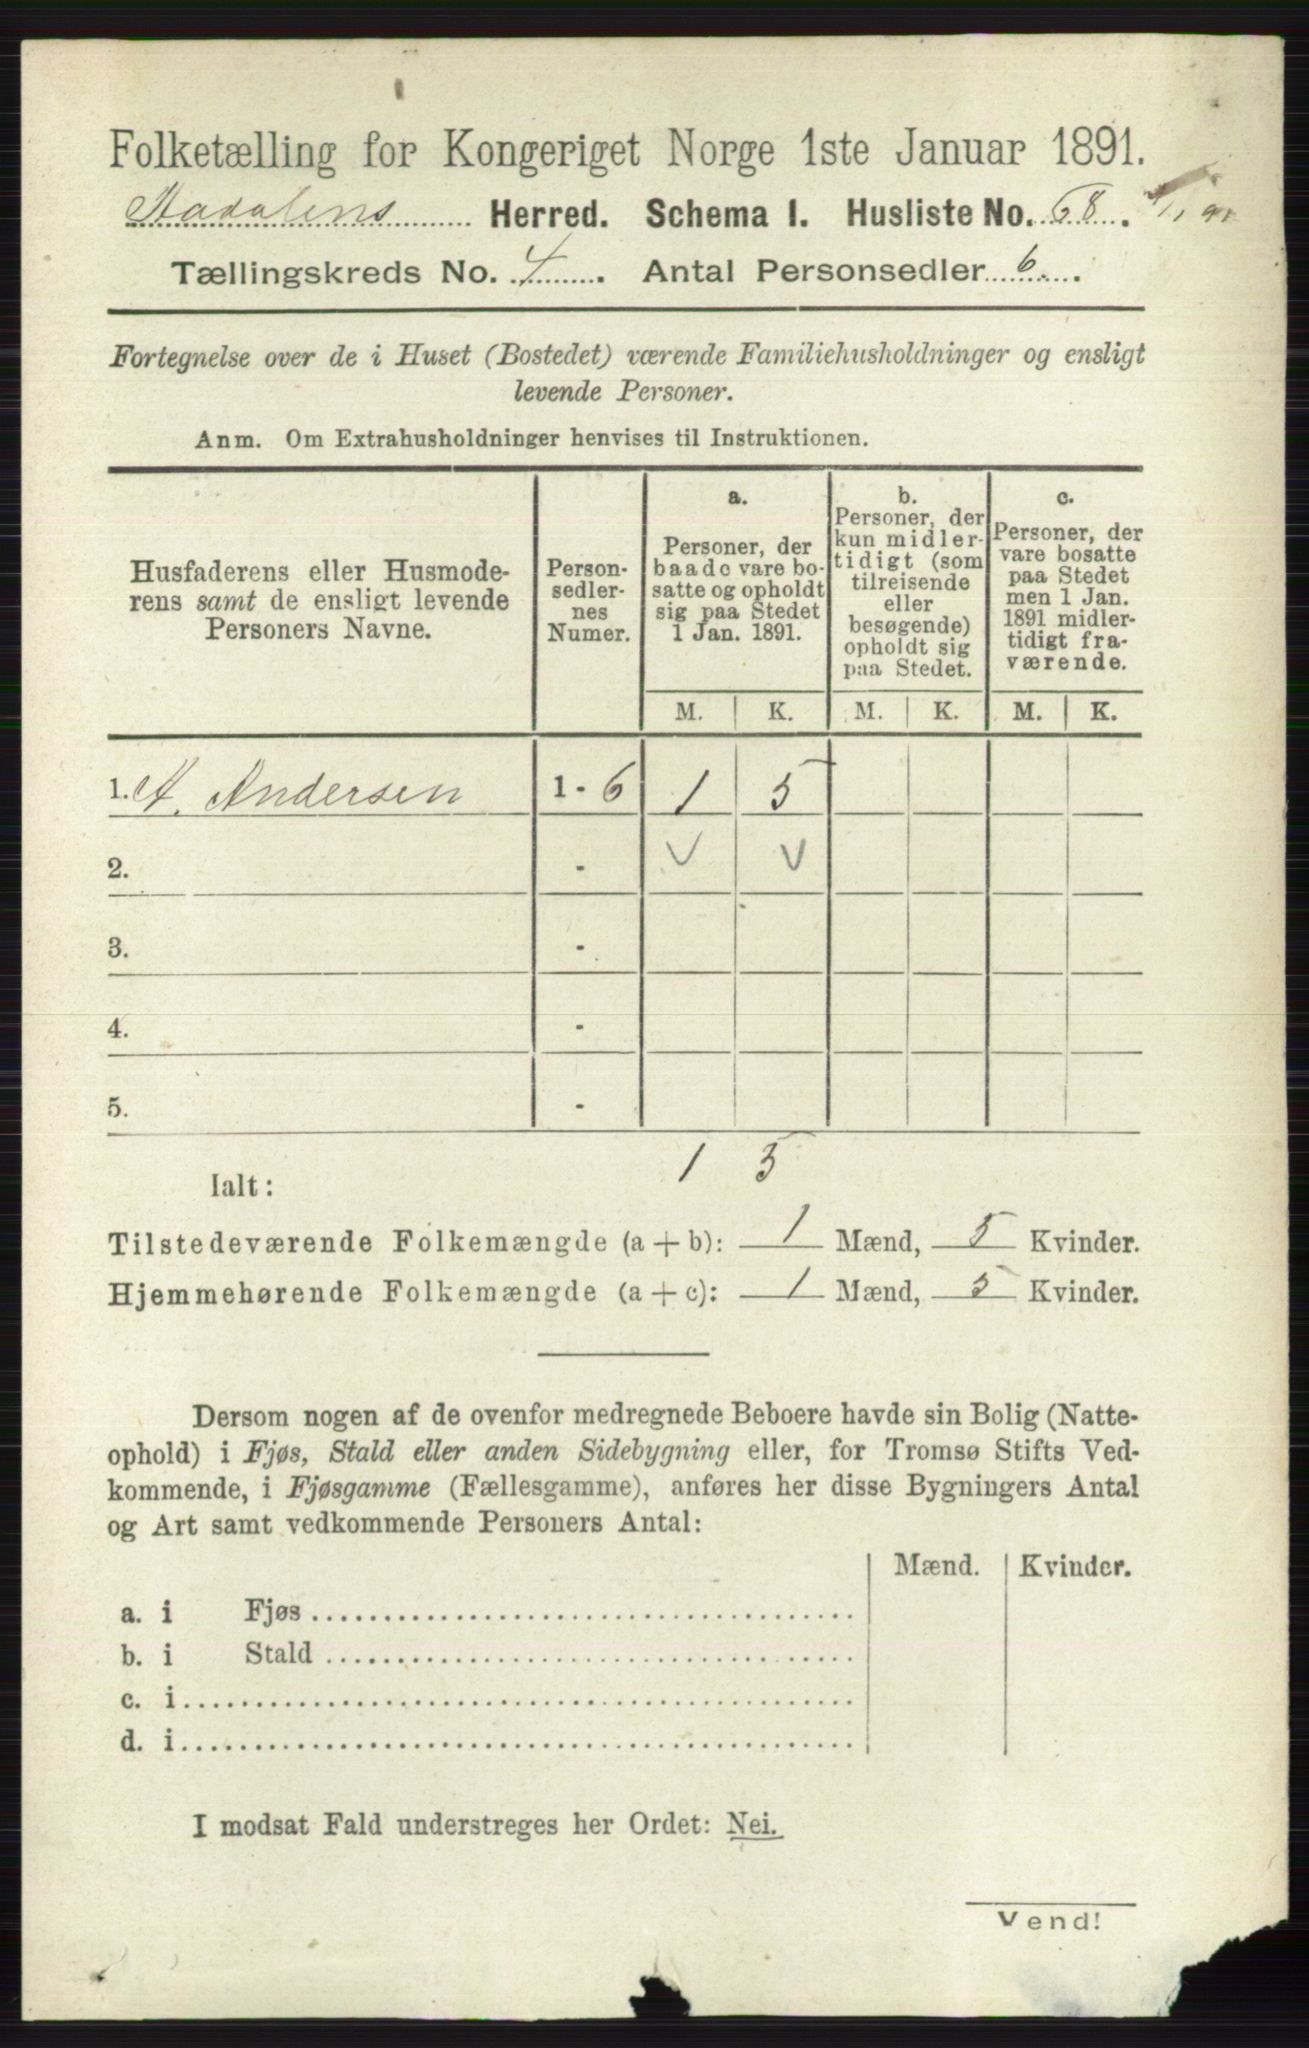 Folketælling for Kongeriget Norge 1ste Januar 1891.
Herred. Schema I. Husliste No. 68.
Tællingskreds No. 4. Antal Personsedler 6.
Fortegnelse over de i Huset (Bostedet) værende Familiehusholdninger og ensligt
levende Personer.
Anm. Om Extrahusholdninger henvises til Instruktionen.
Husfaderens eller Husmode-
rens samt de ensligt levende
Personers Navne.
Person-
sedler-
nes
Numer.
a.
Personer, der
baade vare bo-
satte og opholdt
sig paa Stedet
1 Jan. 1891.
b.
Personer, der
kun midler-
tidigt (som
tilreisende
eller
besøgende)
opholdt sig
paa Stedet.
c.
Personer, der
vare bosatte
paa Stedet
men 1 Jan.
1891 midler-
tidigt fra-
værende.
M. K. M. K. M. K.
1. A. Andersen 1 - 6 1 5
2. - V V
3. -
4. -
5. -
1 5
Ialt:
Tilstedeværende Folkemængde (a + b): 1 Mænd, 5 Kvinder.
Hjemmehørende Folkemængde (a + c): 1 Mænd, 5 Kvinder.
Dersom nogen af de ovenfor medregnede Beboere havde sin Bolig (Natte-
ophold) i Fjøs, Stald eller anden Sidebygning eller, for Tromsø Stifts Ved-
kommende, i Fjøsgamme (Fællesgamme), anføres her disse Bygningers Antal
og Art samt vedkommende Personers Antal:
Mænd. Kvinder.
a. i Fjøs
b. i Stald
c. i
d. i
I modsat Fald understreges her Ordet: Nei.
Vend!